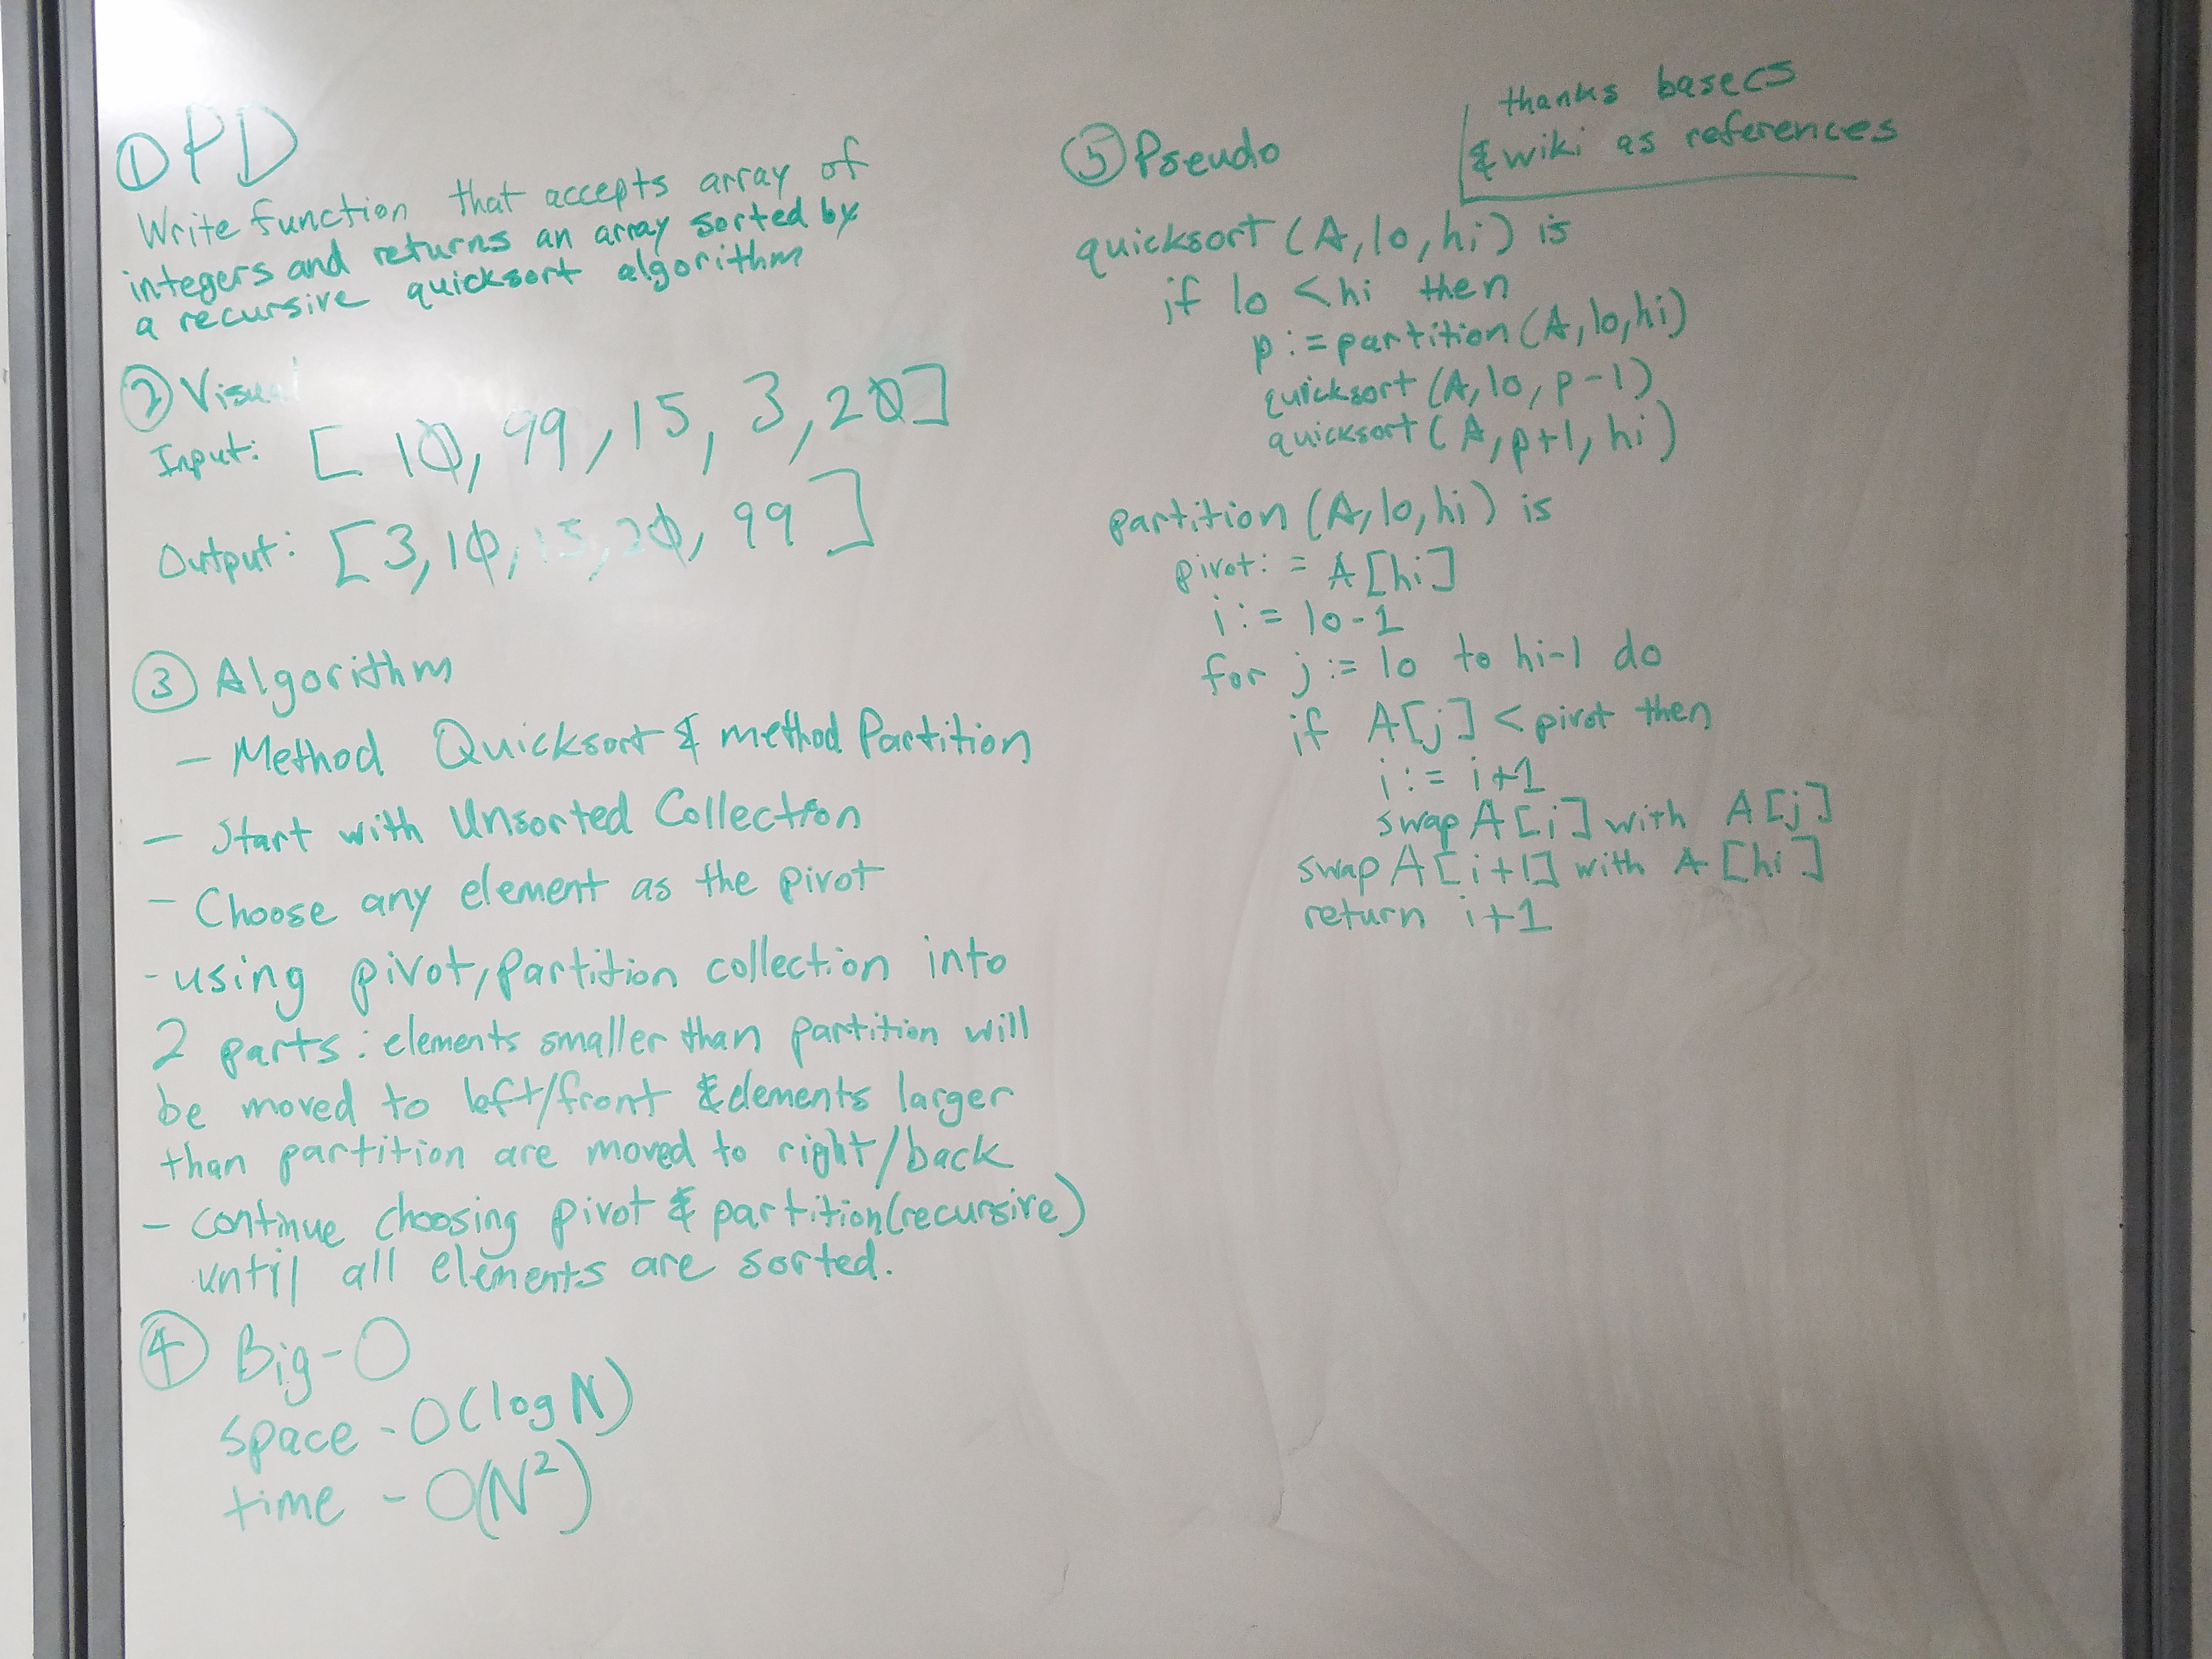 ① PD
Write function that accepts array of
integers and returns an array sorted by
a recursive quicksort algorithm
② Visual
Input: [10, 99, 15, 3, 20]
Output: [3, 10, 15, 20, 99]
③ Algorithm
- Method Quicksort & method Partition
- Start with Unsorted Collection
- Choose any element as the pivot
- using pivot, partition collection into
2 parts: elements smaller than partition will
be moved to left/front & elements larger
than partition are moved to right/back
- continue choosing pivot & partition (recursive)
until all elements are sorted.
④ Big-O
space - O(log N)
time - O(N²)
⑤ Pseudo
thanks basecs
& wiki as references
quicksort (A, lo, hi) is
if lo < hi then
p := partition (A, lo, hi)
quicksort (A, lo, p-1)
quicksort (A, p+1, hi)
partition (A, lo, hi) is
pivot := A[hi]
i := lo-1
for j := lo to hi-1 do
if A[j] < pivot then
i := i+1
swap A[i] with A[j]
swap A[i+1] with A[hi]
return i+1